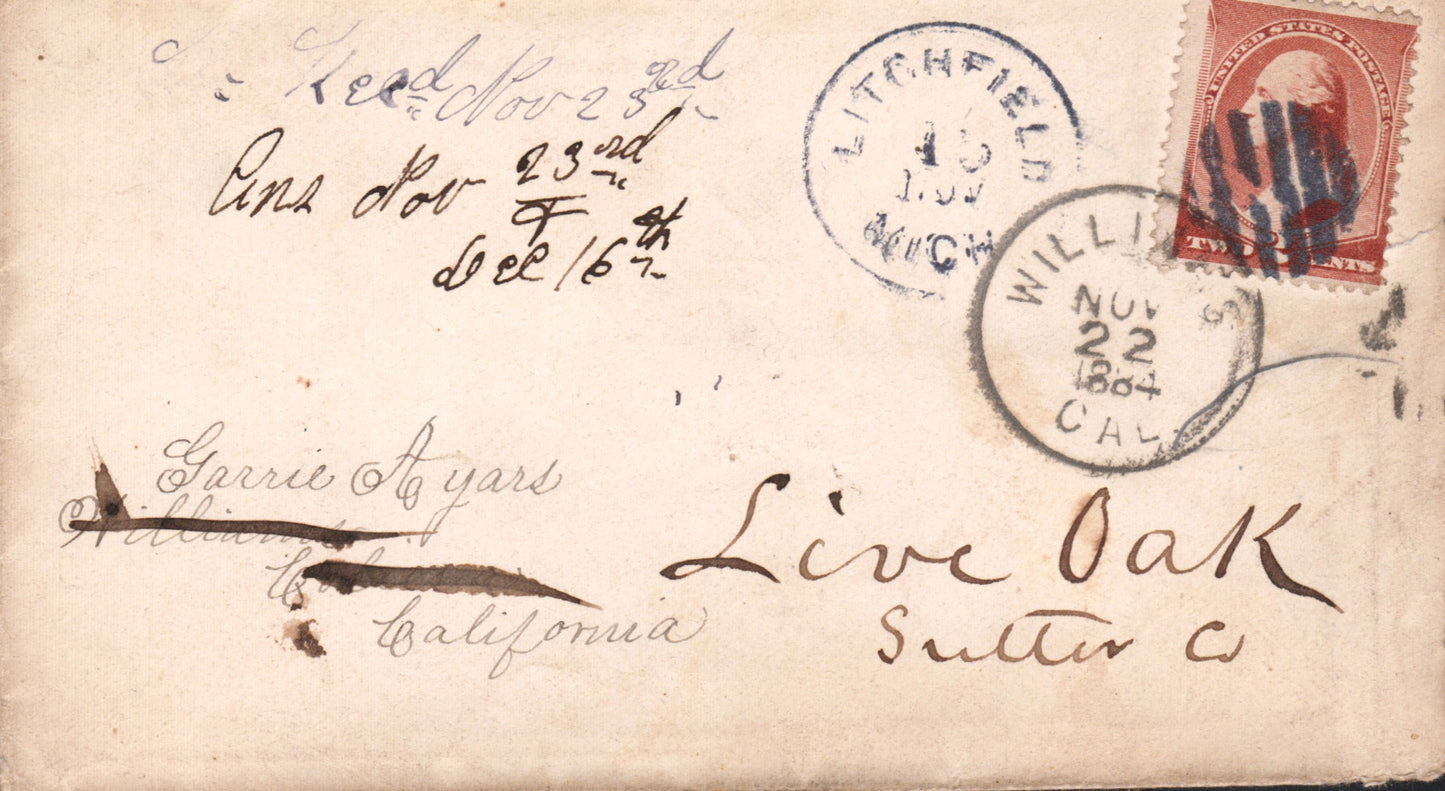 Recd Nov 23rd
Ans Nov 23rd
&
Dec 16th
LITCHFIELD
NOV
MICH
UNITED STATES POSTAGE
TWO 2 CENTS
WILLIAMS
NOV
22
1884
CAL.
Garrie Ayars
Williams
California
Live Oak
Sutter Co